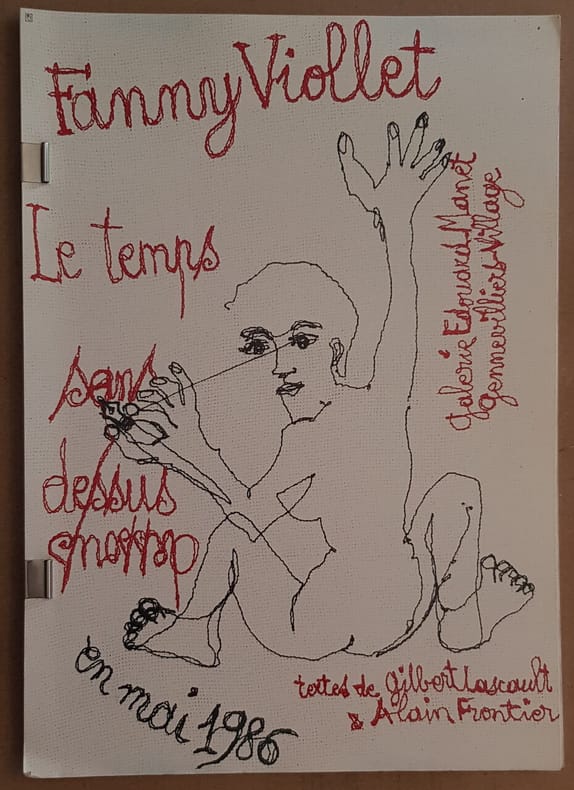 Fanny Viollet
Le temps
sans
dessus
dessous
Galerie Edouard Manet
Gennevilliers-Village
en mai 1986
textes de Gilbert Lascault
& Alain Frontier